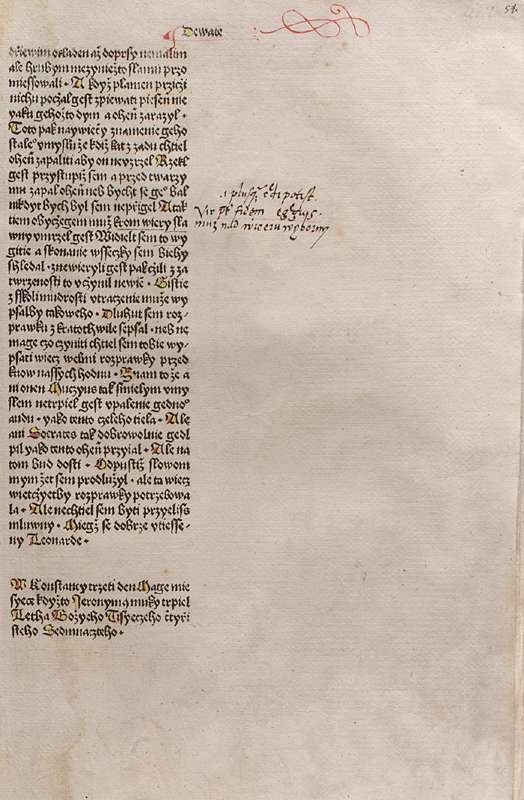 Dewate
51.
dřiewim osladen až doprsy nemalim
ale hrubym mezyniežto slamu przo
miessowali · A když plamen przicži
nichu pocžal gest zpiewati piesen nie
yaku gehožto dym a oheň zarazyl ·
Toto pak naywiecžy znamenie geho
stale° vmyslu že když kat z zadu chtiel
oheň zapaliti aby on neuzrzel Rzekl
gest przystupiž sem a przed twarzy
mu zapal oheň neb bych t se ge° bal
nikdyt bych byl sem nepřigel A tak
tiem obyczegem muž krom wiery sla
wny vmrzel gest Widielt sem to wy
gitie a skonanie wsseczky sem wiechy
shledal · z newieryli gest pakcžili z za
twrzenosti to vcžynil newie · Gistie
z sskoli mudrosti vtraczenie muže wy
psal by takoweho · Dluhut sem roz-
prawku z kratochwile sepsal · neb ne
mage czo cžyniti chtiel sem tobie wy-
psati wiecz welmi rozprawky przed
kuow nassych hodnu · Znam to že a
ni onen Muczyus tak smielym vmy
slem netrpiel gest vpalenie gedno°
audu · yako tento czeleho tiela · Ale
ani Socrates tak dobrowolnie gedl
pil yako tento oheň przyial · Ale na
tom bud dosti · Odpustiž slowom
mym žet sem prodlužyl · ale ta wiecz
wietcžye by rozprawky potrzebowa
la · Ale nechtiel sem byti przyeliss
mluwny · Miegž se dobrze vtiesse-
ny Leonarde ·
muž nad wieru wyborny
W Konstancy trzeti den Mage mie
syece kdyžto Jeronym muky trpiel
Letha Božyeho Tisyczeho cžtyři
steho Sedmnaczteho ·